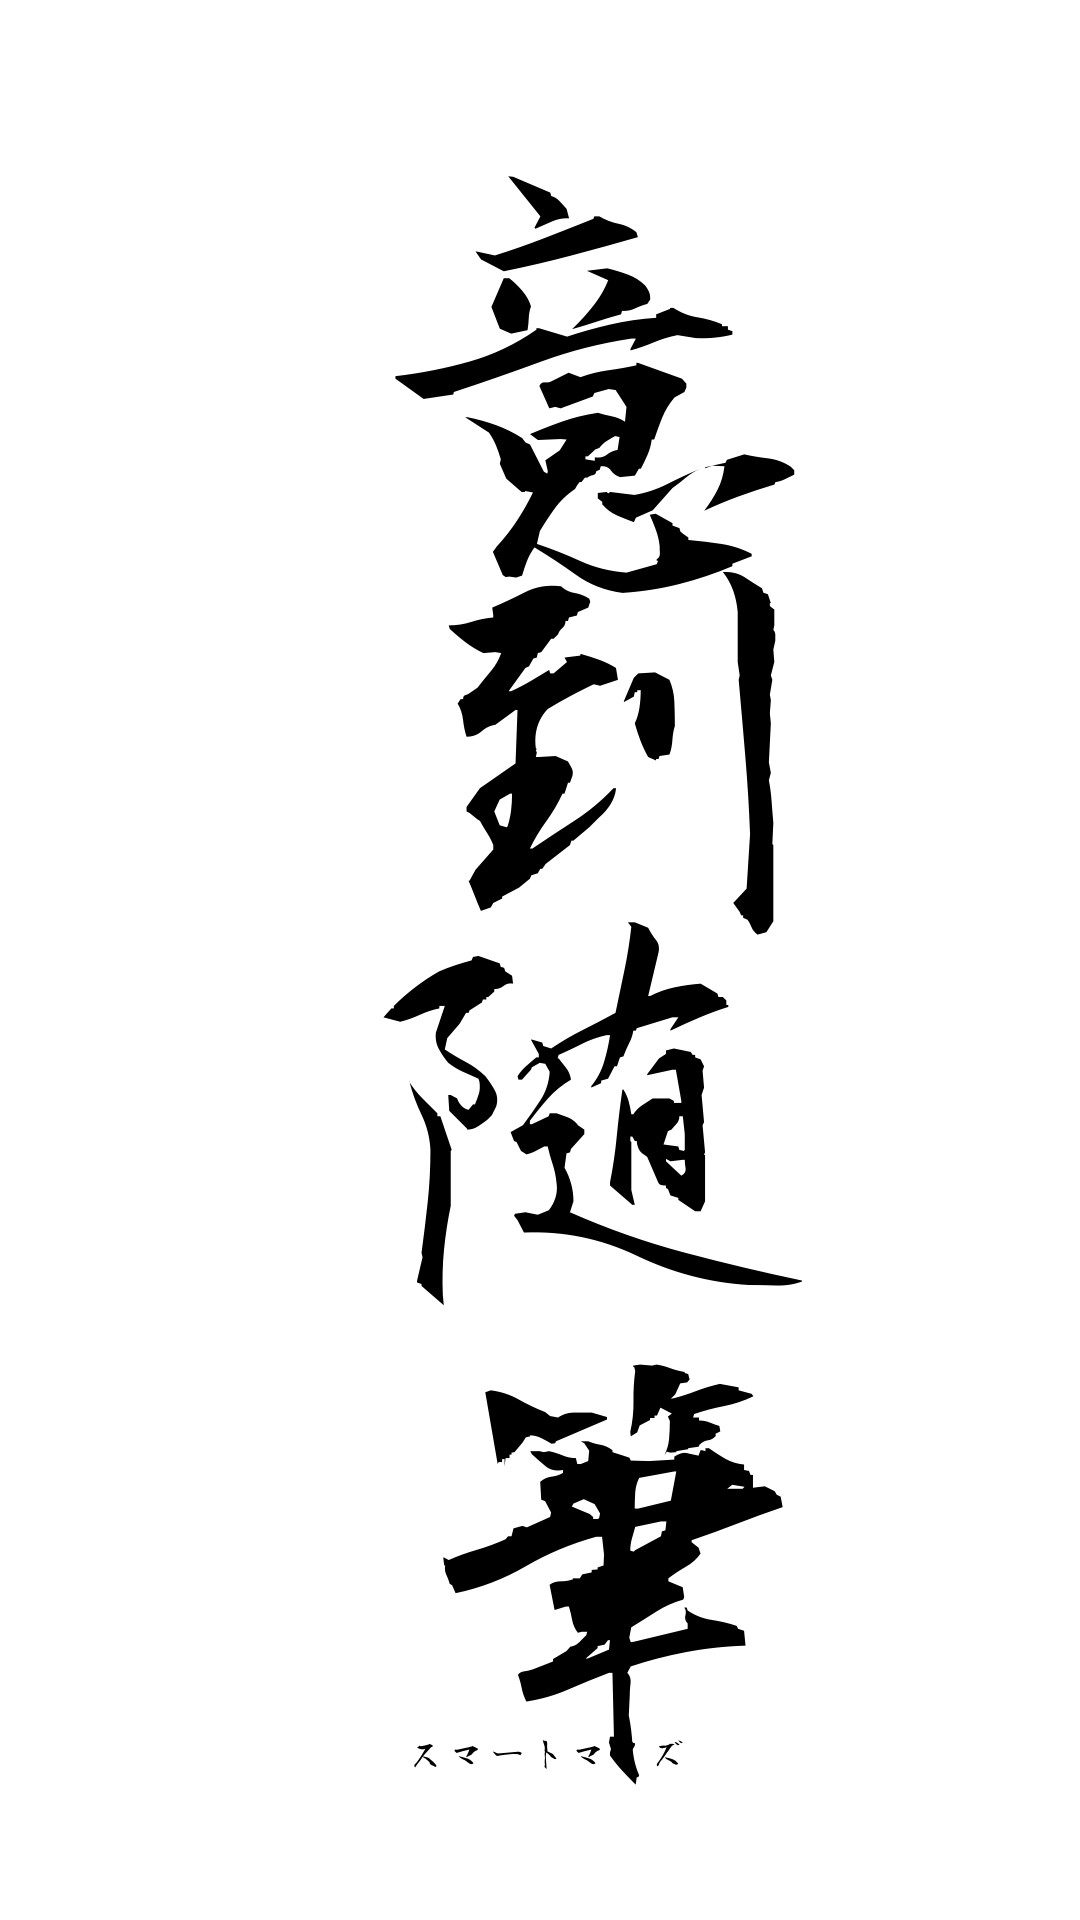 意到随筆
スマートマ ズ